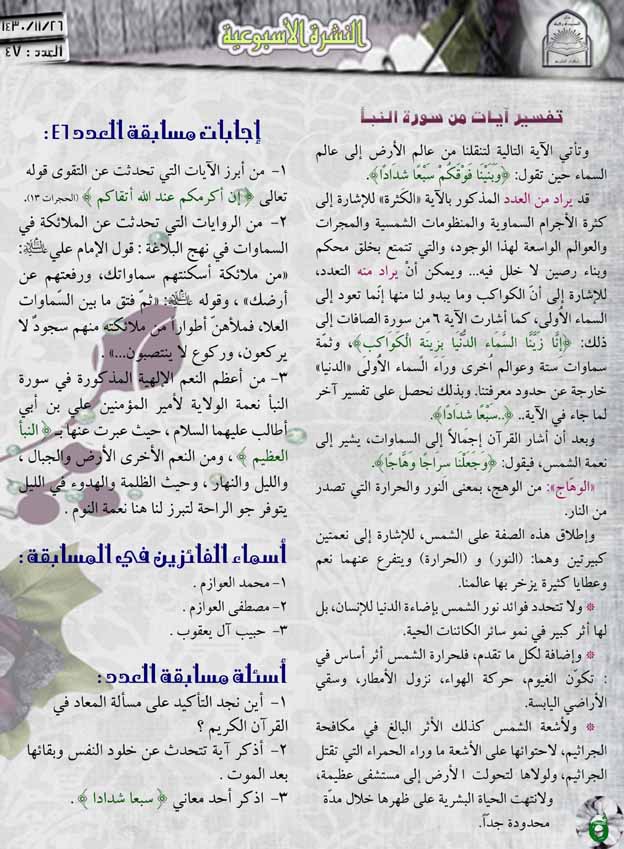 النشرة الأسبوعية
١٤٣٠/١١/٢٦
العدد : ٤٧
تفسير آيات من سورة النبأ
وتأتي الآية التالية لتنقلنا من عالم الأرض إلى عالم
السماء حين تقول: ﴿وَبَنَيْنَا فَوْقَكُمْ سَبْعًا شِدَادًا﴾.
قد يراد من العدد المذكور بالآية «الكثرة» للإشارة إلى
كثرة الأجرام السماوية والمنظومات الشمسية والمجرات
والعوالم الواسعة لهذا الوجود، والتي تتمتع بخلق محكم
وبناء رصين لا خلل فيه... ويمكن أنْ يراد منه التعدد،
للإشارة إلى أنّ الكواكب وما يبدو لنا منها إنّما تعود إلى
السماء الأولى، كما أشارت الآية ٦ من سورة الصافات إلى
ذلك: ﴿إِنَّا زَيَّنَّا السَّمَاء الدُّنْيَا بِزِينَةٍ الْكَوَاكِبِ﴾، وثمّة
سماوات ستة وعوالم اُخرى وراء السماء الأولى «الدنيا»
خارجة عن حدود معرفتنا. وبذلك نحصل على تفسير آخر
لما جاء في الآية.. ﴿..سَبْعًا شِدَادًا﴾.
وبعد أن أشار القرآن إجمالاً إلى السماوات، يشير إلى
نعمة الشمس، فيقول: ﴿وَجَعَلْنَا سِرَاجًا وَهَّاجًا﴾.
«الوهّاج»: من الوهج، بمعنى النور والحرارة التي تصدر
من النار.
وإطلاق هذه الصفة على الشمس، للإشارة إلى نعمتين
كبيرتين وهما: (النور) و (الحرارة) ويتفرع عنهما نعم
وعطايا كثيرة يزخر بها عالمنا.
* ولا تتحدد فوائد نور الشمس بإضاءة الدنيا للإنسان، بل
لها أثر كبير في نمو سائر الكائنات الحية.
* وإضافة لكل ما تقدم، فلحرارة الشمس أثر أساس في
: تكوّن الغيوم، حركة الهواء، نزول الأمطار، وسقي
الأراضي اليابسة.
* ولأشعة الشمس كذلك الأثر البالغ في مكافحة
الجراثيم، لاحتوائها على الأشعة ما وراء الحمراء التي تقتل
الجراثيم، ولولاها لتحولت الأرض إلى مستشفى عظيمة،
ولانتهت الحياة البشرية على ظهرها خلال مدّة
محدودة جدّاً.
إجابات مسابقة العدد ٤٦ :
١- من أبرز الآيات التي تحدثت عن التقوى قوله
تعالى ﴿ إن أكرمكم عند الله أتقاكم ﴾ (الحجرات ١٣).
٢- من الروايات التي تحدثت عن الملائكة في
السماوات في نهج البلاغة : قول الإمام علي:
«من ملائكة أسكنتهم سماواتك، ورفعتهم عن
أرضك» ، وقوله : «ثمّ فتق ما بين السّماوات
العلا، فملأهنّ أطواراً من ملائكته منهم سجودٌ لا
يركعون، وركوع لا ينتصبون...» .
٣- من أعظم النعم الإلهية المذكورة في سورة
النبأ نعمة الولاية لأمير المؤمنين علي بن أبي
أطالب عليهما السلام ، حيث عبرت عنها بـ ﴿ النبأ
العظيم ﴾ ، ومن النعم الأخرى الأرض والجبال ،
والليل والنهار ، وحيث الظلمة والهدوء في الليل
يتوفر جو الراحة لتبرز لنا هنا نعمة النوم .
أسماء الفائزين في المسابقة :
١- محمد العوازم .
٢- مصطفى العوازم .
٣- حبيب آل يعقوب .
أسئلة مسابقة العدد :
١- أين نجد التأكيد على مسألة المعاد في
القرآن الكريم ؟
٢- أذكر آية تتحدث عن خلود النفس وبقائها
بعد الموت .
٣- اذكر أحد معاني ﴿ سبعا شدادا ﴾ .
٥